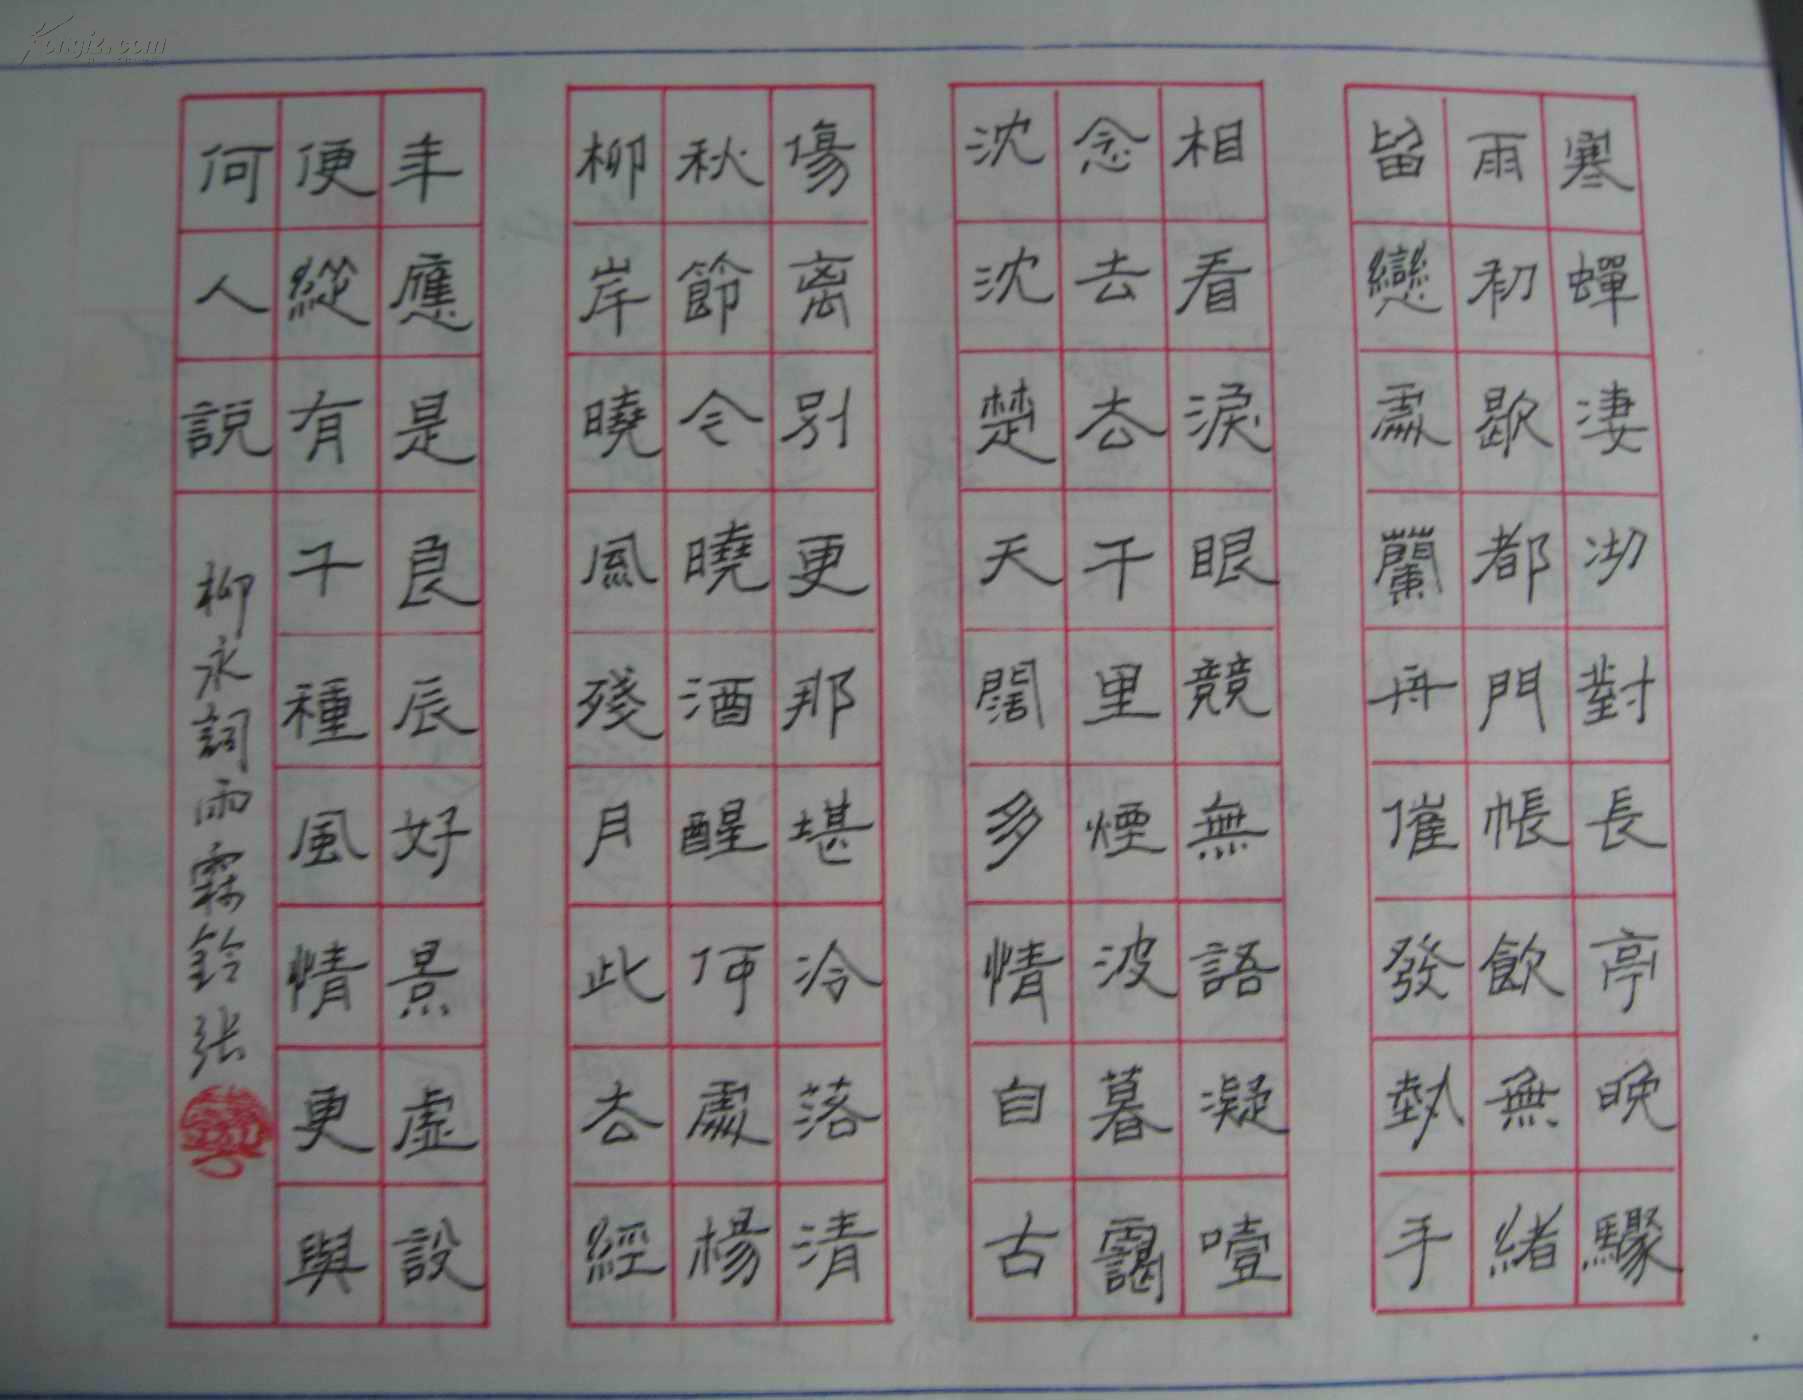 寒蟬淒切對長亭晚驟
雨初歇都門帳飲無緒
留戀處蘭舟催發執手
相看淚眼競無語凝噎
念去去千里煙波暮靄
沈沈楚天闊多情自古
傷离別更那堪冷落清
秋節今曉酒醒何處楊
柳岸曉風殘月此去經
年應是良辰好景虛設
便縱有千種風情更與
何人說
柳永詞雨霖鈴张